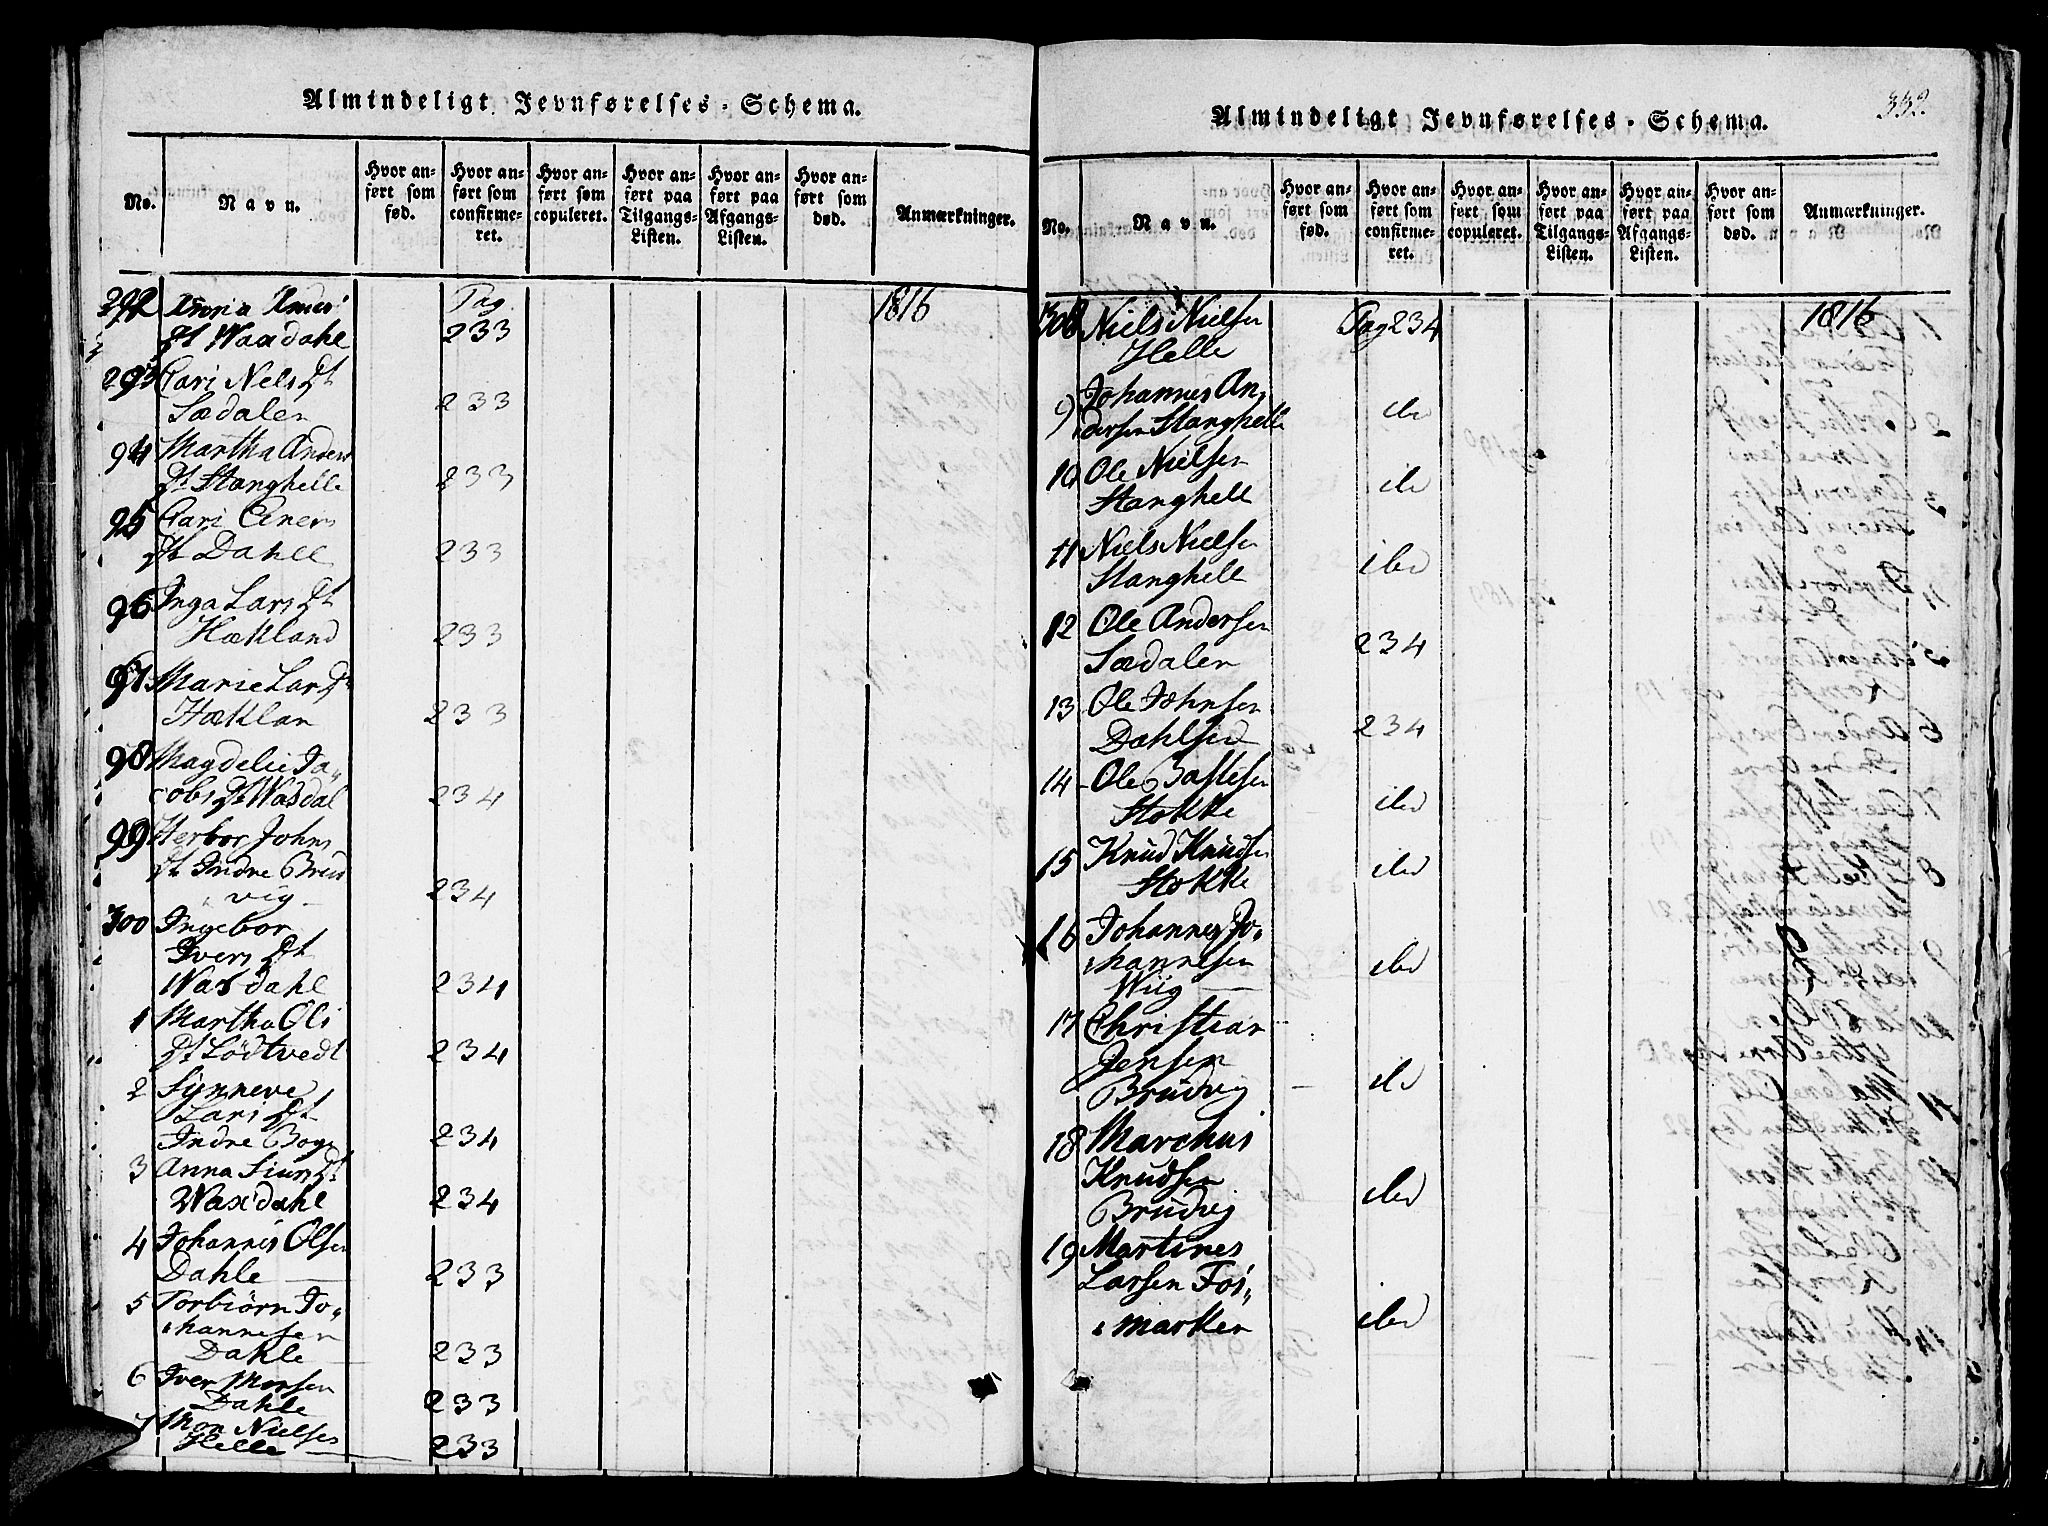 Almindeligt Jevnførelses-Schema.
No.
Navn.
Hvor anført som fød.
Hvor anført som confirmeret.
Hvor anført som copuleret.
Hvor anført paa Tilgangs-Listen.
Hvor anført paa Afgangs-Listen.
Hvor anført som død.
Anmærkninger.
292 Pag. 1816
Dt Waxdahl 233
293 Cari Nels Dt
Sædalen 233
94 Martha Anders
Dt Stanghelle 233
95 Cari Einers
Dt Dahle 233
96 Inga Lars Dt
Hækland 233
97 Marie Lars Dt
Hæklan 233
98 Magdelie Ja„
cobs Dt Wasdal 234
99 Herbor Johns
Dt Indre Brud
vig 234
300 Ingebor
Ivers Dt
Wasdahl 234
1 Martha Ols
Dt Lødtvedt 234
2 Synneve
Lars Dt
Indre Boge 234
3 Anna Siurs Dt
Waxdahl 234
4 Johannis Olsen
Dahle 233
5 Torbiørn Jo„
hannesen
Dahle 233
6 Iver Monsen
Dahle 233
7 Mon Nielsen
Helle 233
332.
Almindeligt Jevnførelses-Schema.
No.
Navn.
Hvor anført som fød.
Hvor anført som confirmeret.
Hvor anført som copuleret.
Hvor anført paa Tilgangs-Listen.
Hvor anført paa Afgangs-Listen.
Hvor anført som død.
Anmærkninger.
308 Niels Nielsen Pag 234 1816
Helle
9 Johannes An„
dersen Stanghelle ibd
10 Ole Nielsen
Stanghell ibd
11 Niels Nielsen
Stanghell ibd
12 Ole Andersen
Sædalen 234
13 Ole Johnsen
Dahlseid 234
14 Ole Bastesen
Stokke ibd
15 Knud Knudsen
Stokke ibd
16 Johannes Jo„
hannesen ibd
Wiig
17 Christian
Jensen
Brudvig ibd
18 Marchus
Knudsen
Brudvig ibd
19 Martines
Larsen Fos„
marken ibd